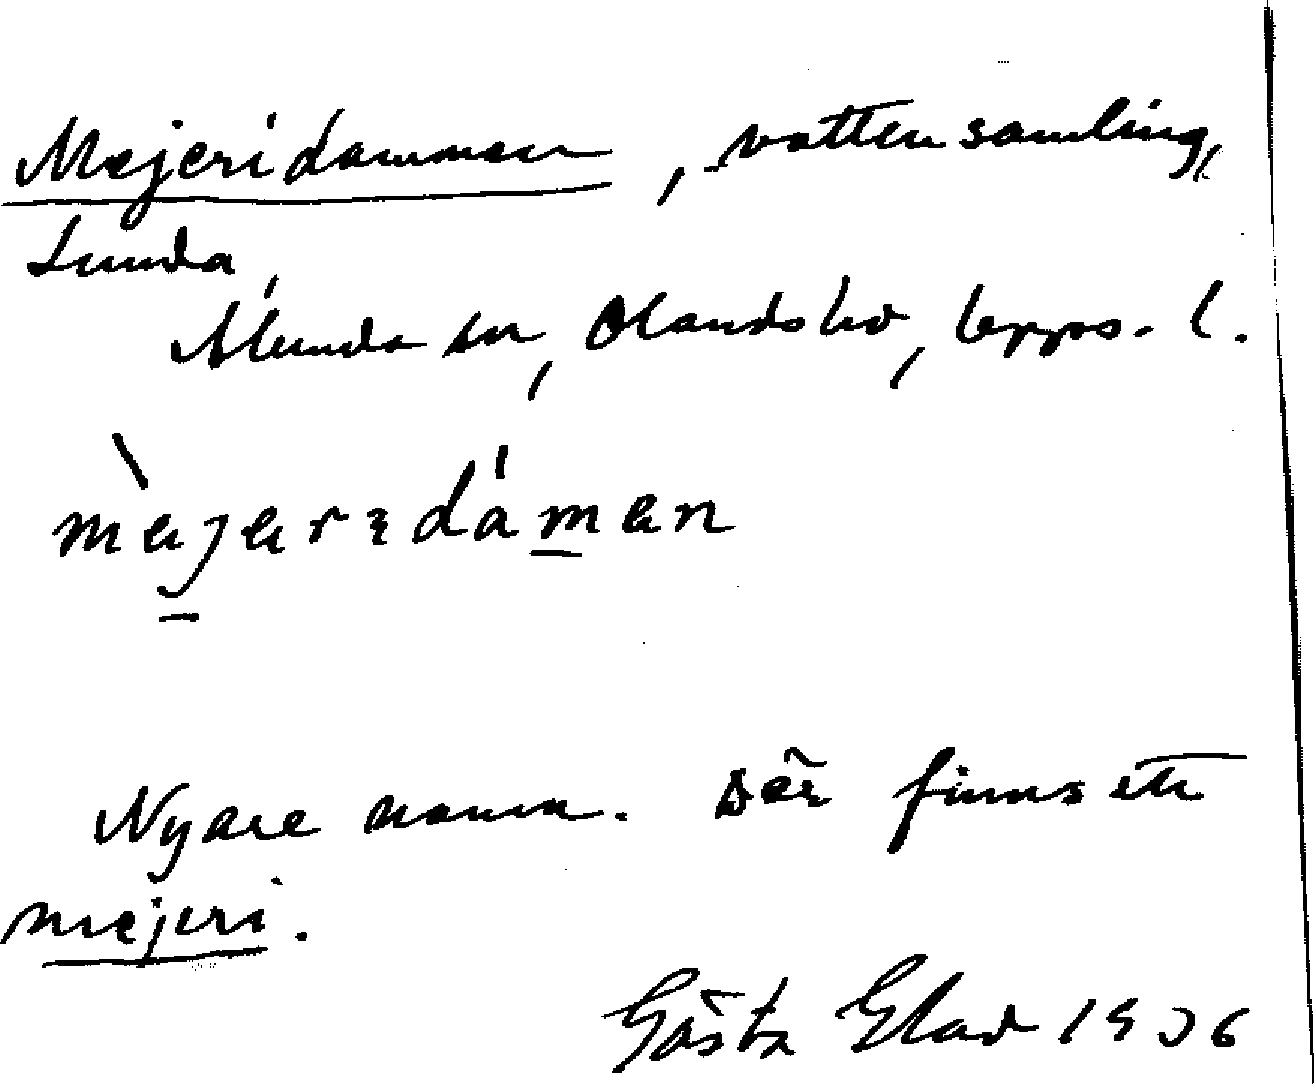 Mejeridammen, vattensamling,
Lunda,
Alunda sn, Olands hd, Upps. l.
Nyare namn. Där finns ett
mejeri.
Gösta Elad 1936